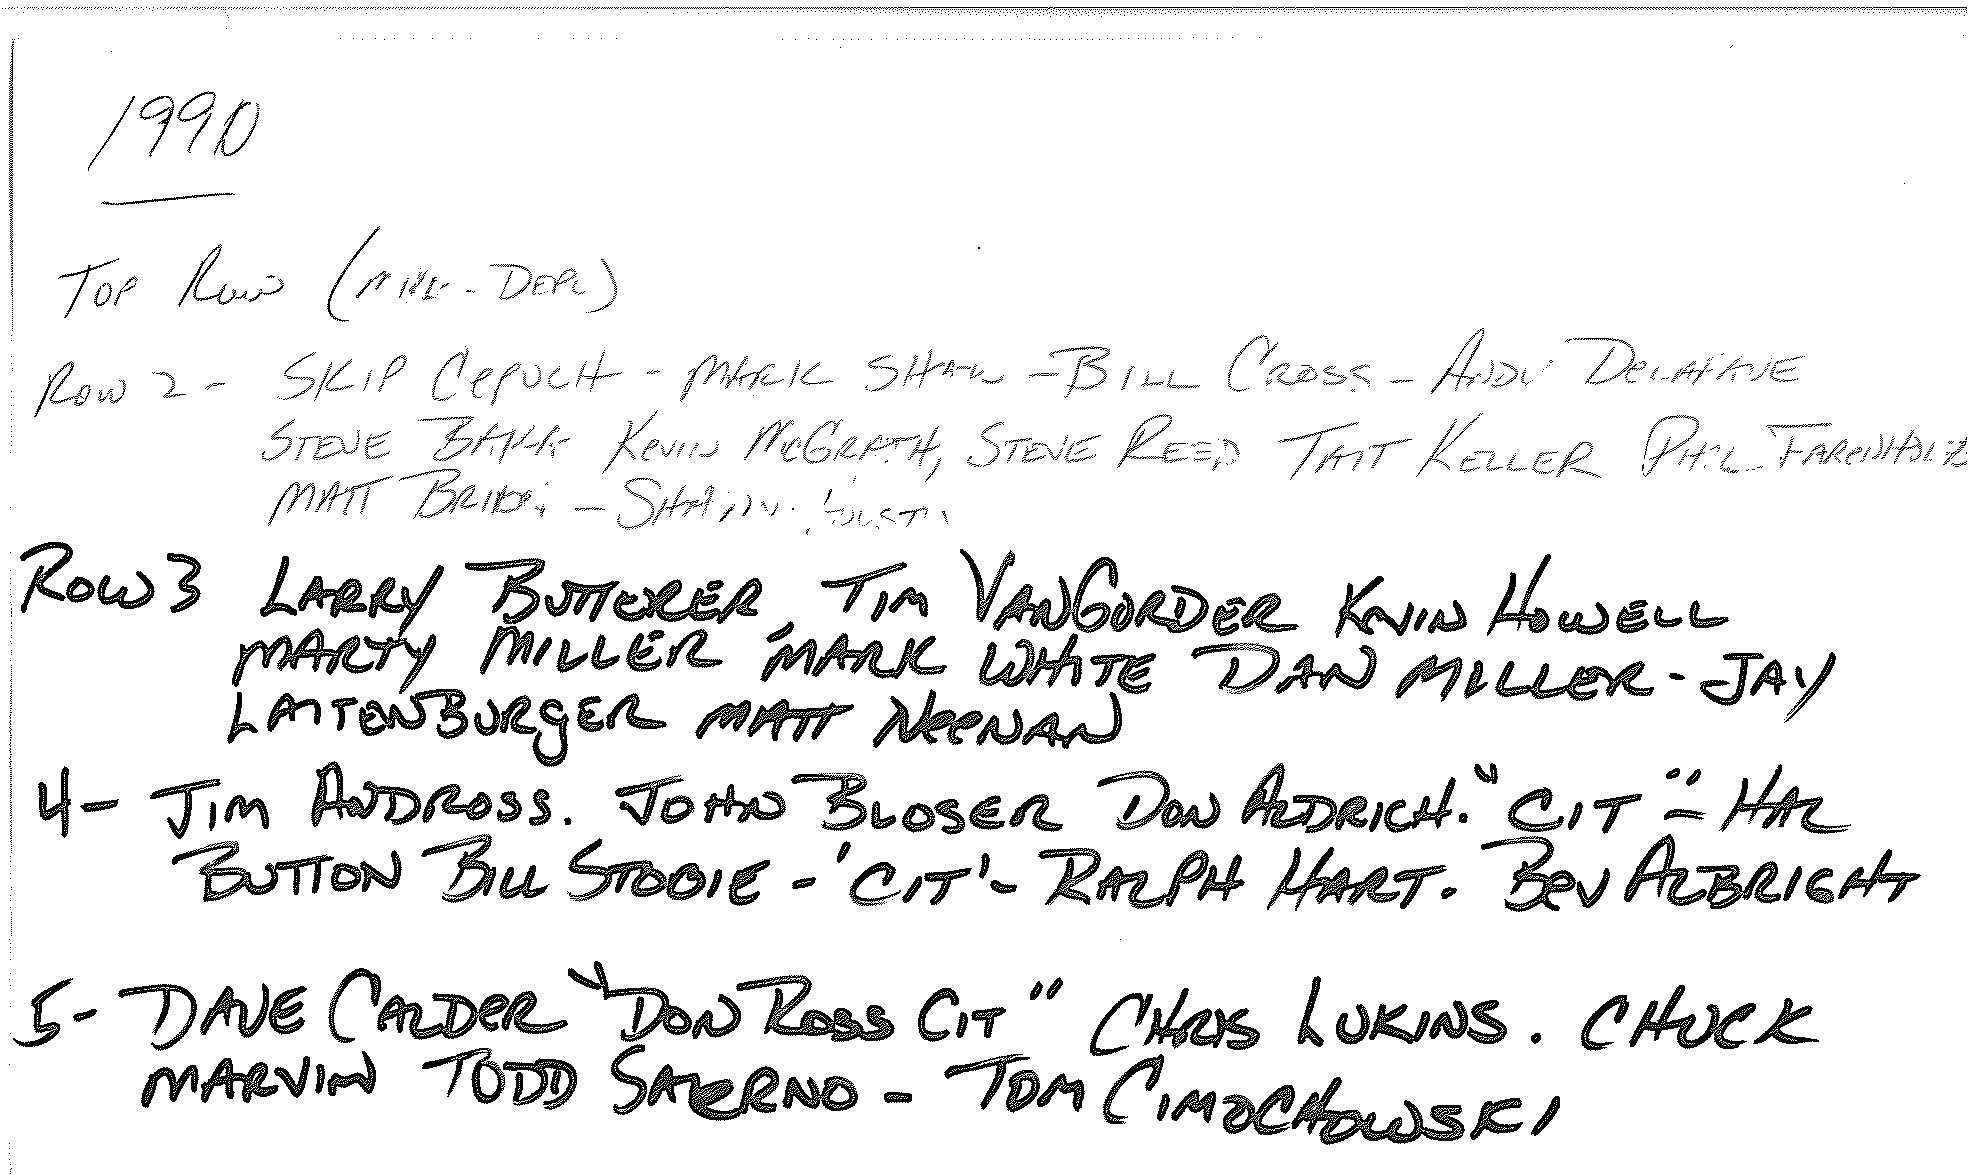 1990
TOP ROW (MIKE - DEPL)
ROW 2 - SKIP CEPUCH - MARK SHAW - BILL CROSS - ANDY DELAHAVE
STEVE KEVIN McGRATH, STEVE REED TAIT KELLER PHIL FARENHOLTZ
MATT - SHAWN
ROW 3 LARRY BUTTERER TIM VANGORDER KEVIN HOWELL
MARTY MILLER MARK WHITE DAN MILLER - JAY
LAITENBURGER MATT NEENAN
4 - JIM ANDROSS. JOHN BLOSER DON ALDRICH. "CIT" - HAL
BUTTON BILL STOBIE - 'CIT' - RALPH HART. BEV ALBRIGHT
5 - DAVE CALDER "DON ROSS CIT" CHRIS LUKINS. CHUCK
MARVIN TODD SALERNO - TOM CIMOCHOWSKI